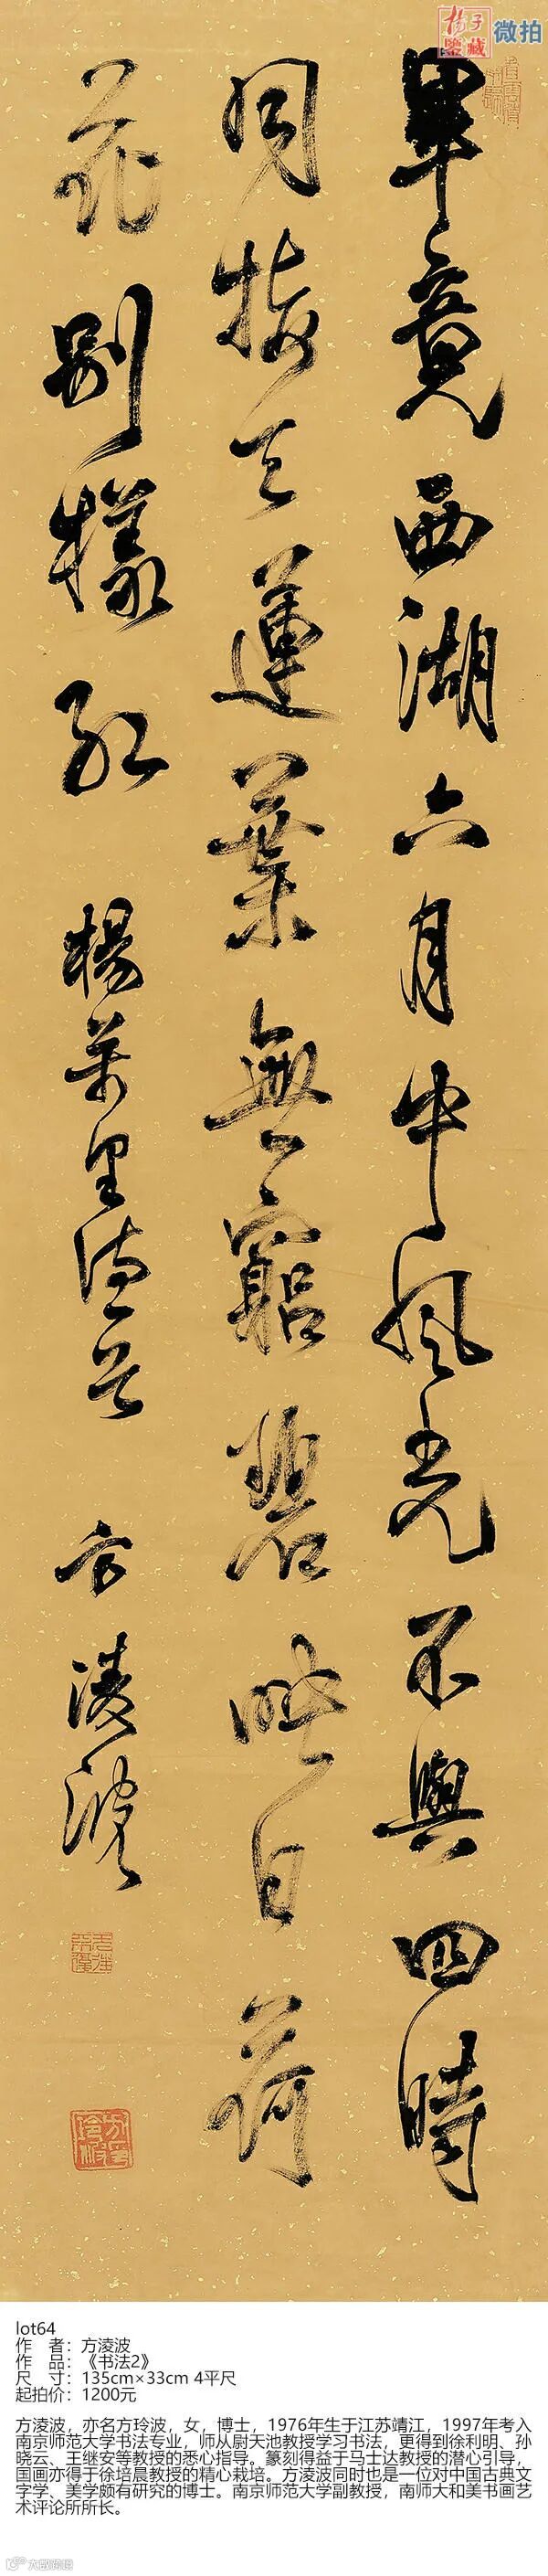 揚子
鑒藏
微拍
畢竟西湖六月中風光不與四時
同接天蓮葉無窮碧映日荷
花別樣紅 楊萬里詩一首 方淩波
lot64
作 者：方淩波
作 品：《书法2》
尺 寸：135cm×33cm 4平尺
起拍价：1200元
方淩波，亦名方玲波，女，博士，1976年生于江苏靖江，1997年考入
南京师范大学书法专业，师从尉天池教授学习书法，更得到徐利明、孙
晓云、王继安等教授的悉心指导。篆刻得益于马士达教授的潜心引导，
国画亦得于徐培晨教授的精心栽培。方淩波同时也是一位对中国古典文
字学、美学颇有研究的博士。南京师范大学副教授，南师大和美书画艺
术评论所所长。
大数跨境